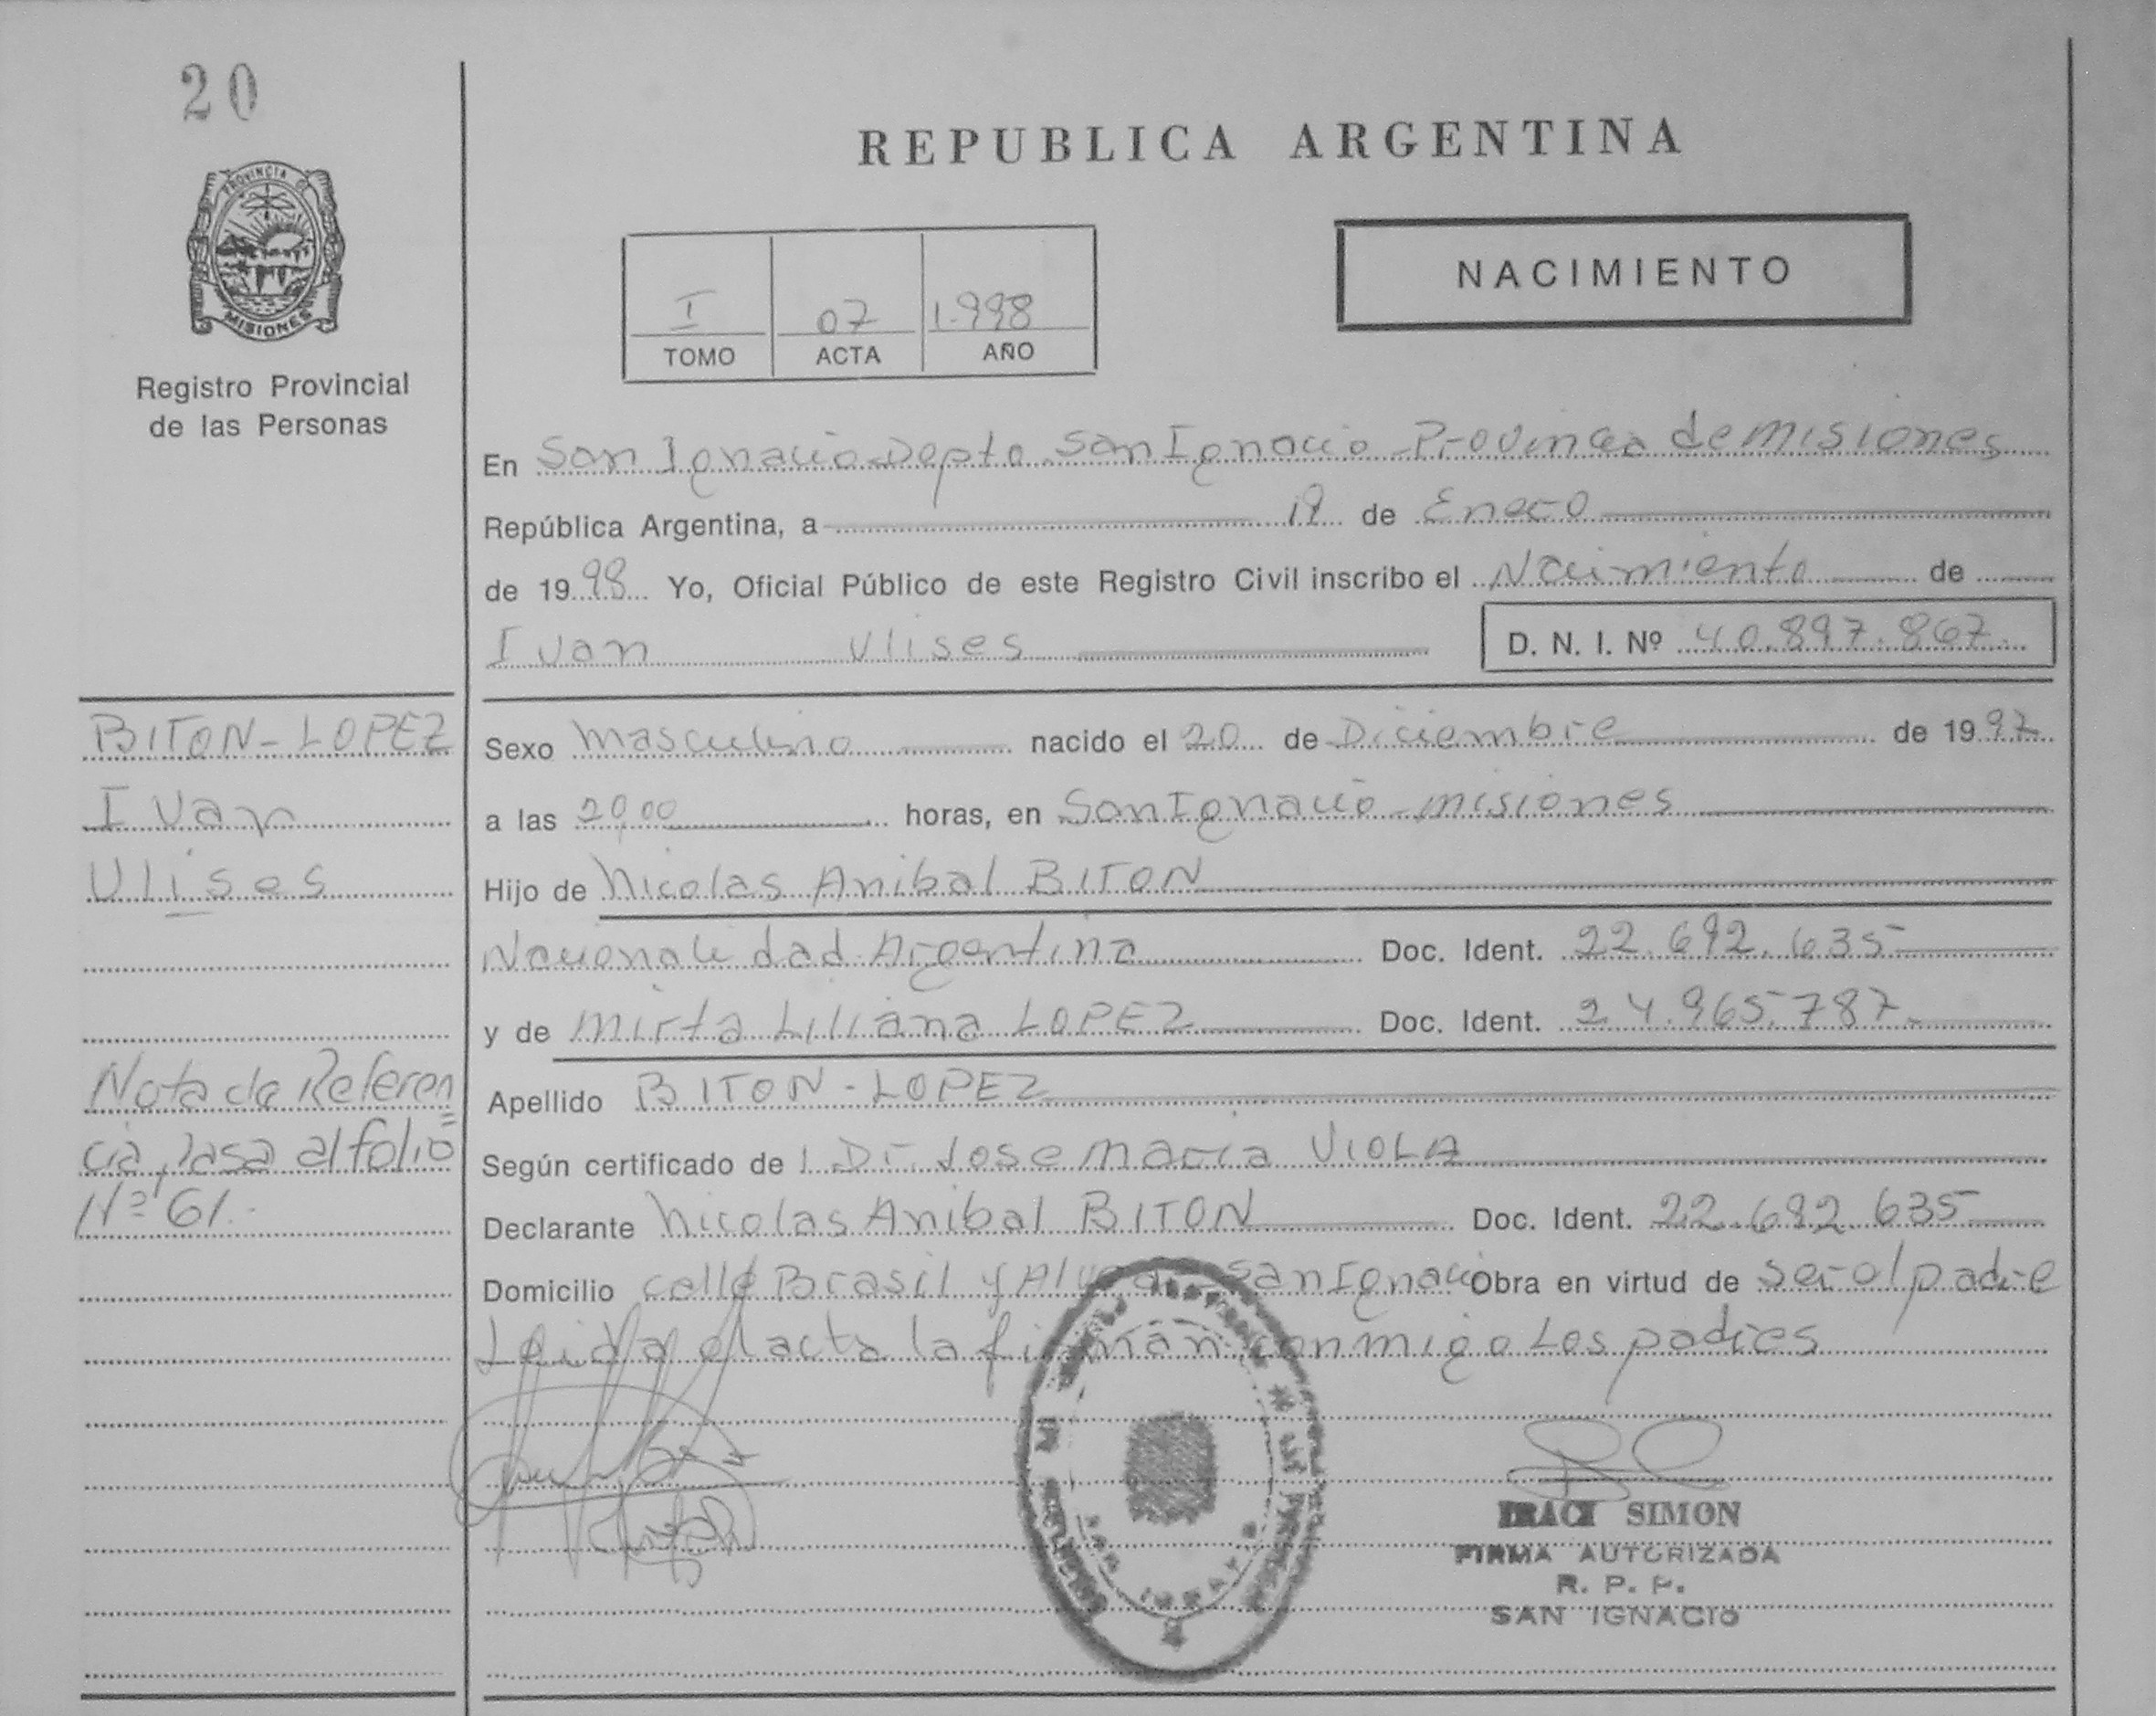 20
PROVINCIA DE
MISIONES
Registro Provincial
de las Personas
REPUBLICA ARGENTINA
I 07 1.998
TOMO ACTA AÑO
NACIMIENTO
En San Ignacio Depto San Ignacio Provincia de Misiones
República Argentina, a de Enero
de 1998 Yo, Oficial Público de este Registro Civil inscribo el Nacimiento de
Ivan Ulises D. N. I. Nº 40.897.867.
BITON - LOPEZ
Ivan
Ulises
Nota de Referen
cia, pasa al folio
Nº 61.-
Sexo Masculino nacido el 20 de Diciembre de 1997
a las 20,00 horas, en San Ignacio - Misiones
Hijo de Nicolas Anibal BITON
Nacionalidad Argentina Doc. Ident. 22.692.635
y de Mirta Liliana LOPEZ Doc. Ident. 24.965.787.
Apellido BITON - LOPEZ
Según certificado de Dr. Jose Maria VIOLA
Declarante Nicolas Anibal BITON Doc. Ident. 22.692.635
Domicilio calle Brasil y San Ignacio Obra en virtud de ser el padre
Leida el acta la firman conmigo Los padres
SIMON
FIRMA AUTORIZADA
R. P. P.
SAN IGNACIO